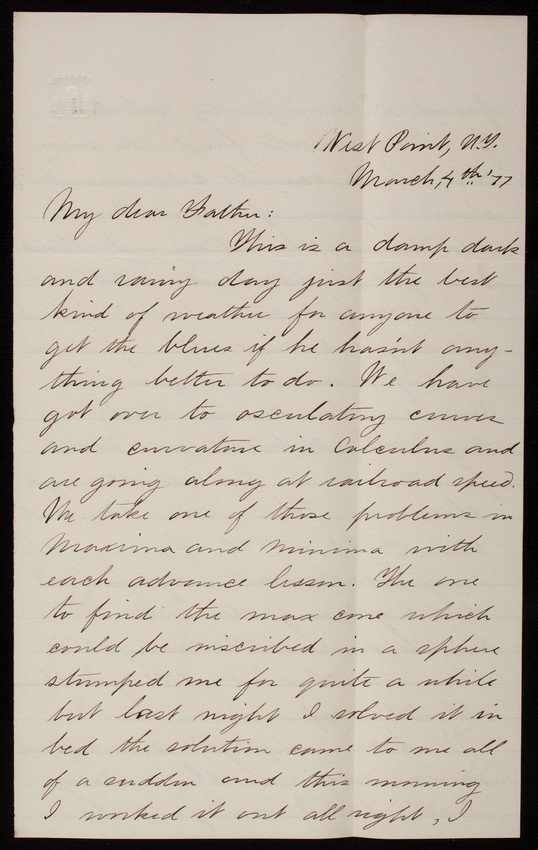 West Point, N.Y.
March, 4th '77
My dear Father:
This is a damp dark
and rainy day just the best
kind of weather for anyone to
get the blues if he hasn't any-
thing better to do. We have
got over to osculating curves
and curvature in Calculus and
are going along at railroad speed.
We take one of those problems in
Maxima and Minima with
each advance lesson. The one
to find the max cone which
could be inscribed in a sphere
stumped me for quite a while
but last night I solved it in
bed the solution came to me all
of a sudden and this morning
I worked it out all right, I